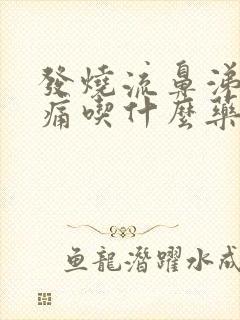 發燒流鼻涕
痛喫什麼藥
魚龍潛躍水成